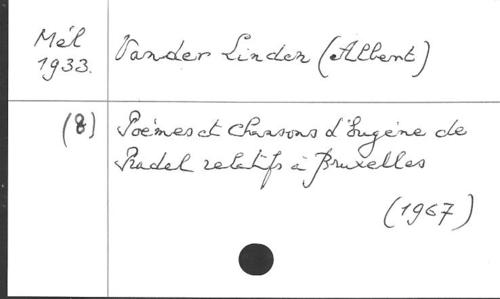 Mél Vander Linden (Albert)
1933.
(8) Poèmes et chansons d'Eugène de
Pradel relatifs à Bruxelles
(1967)